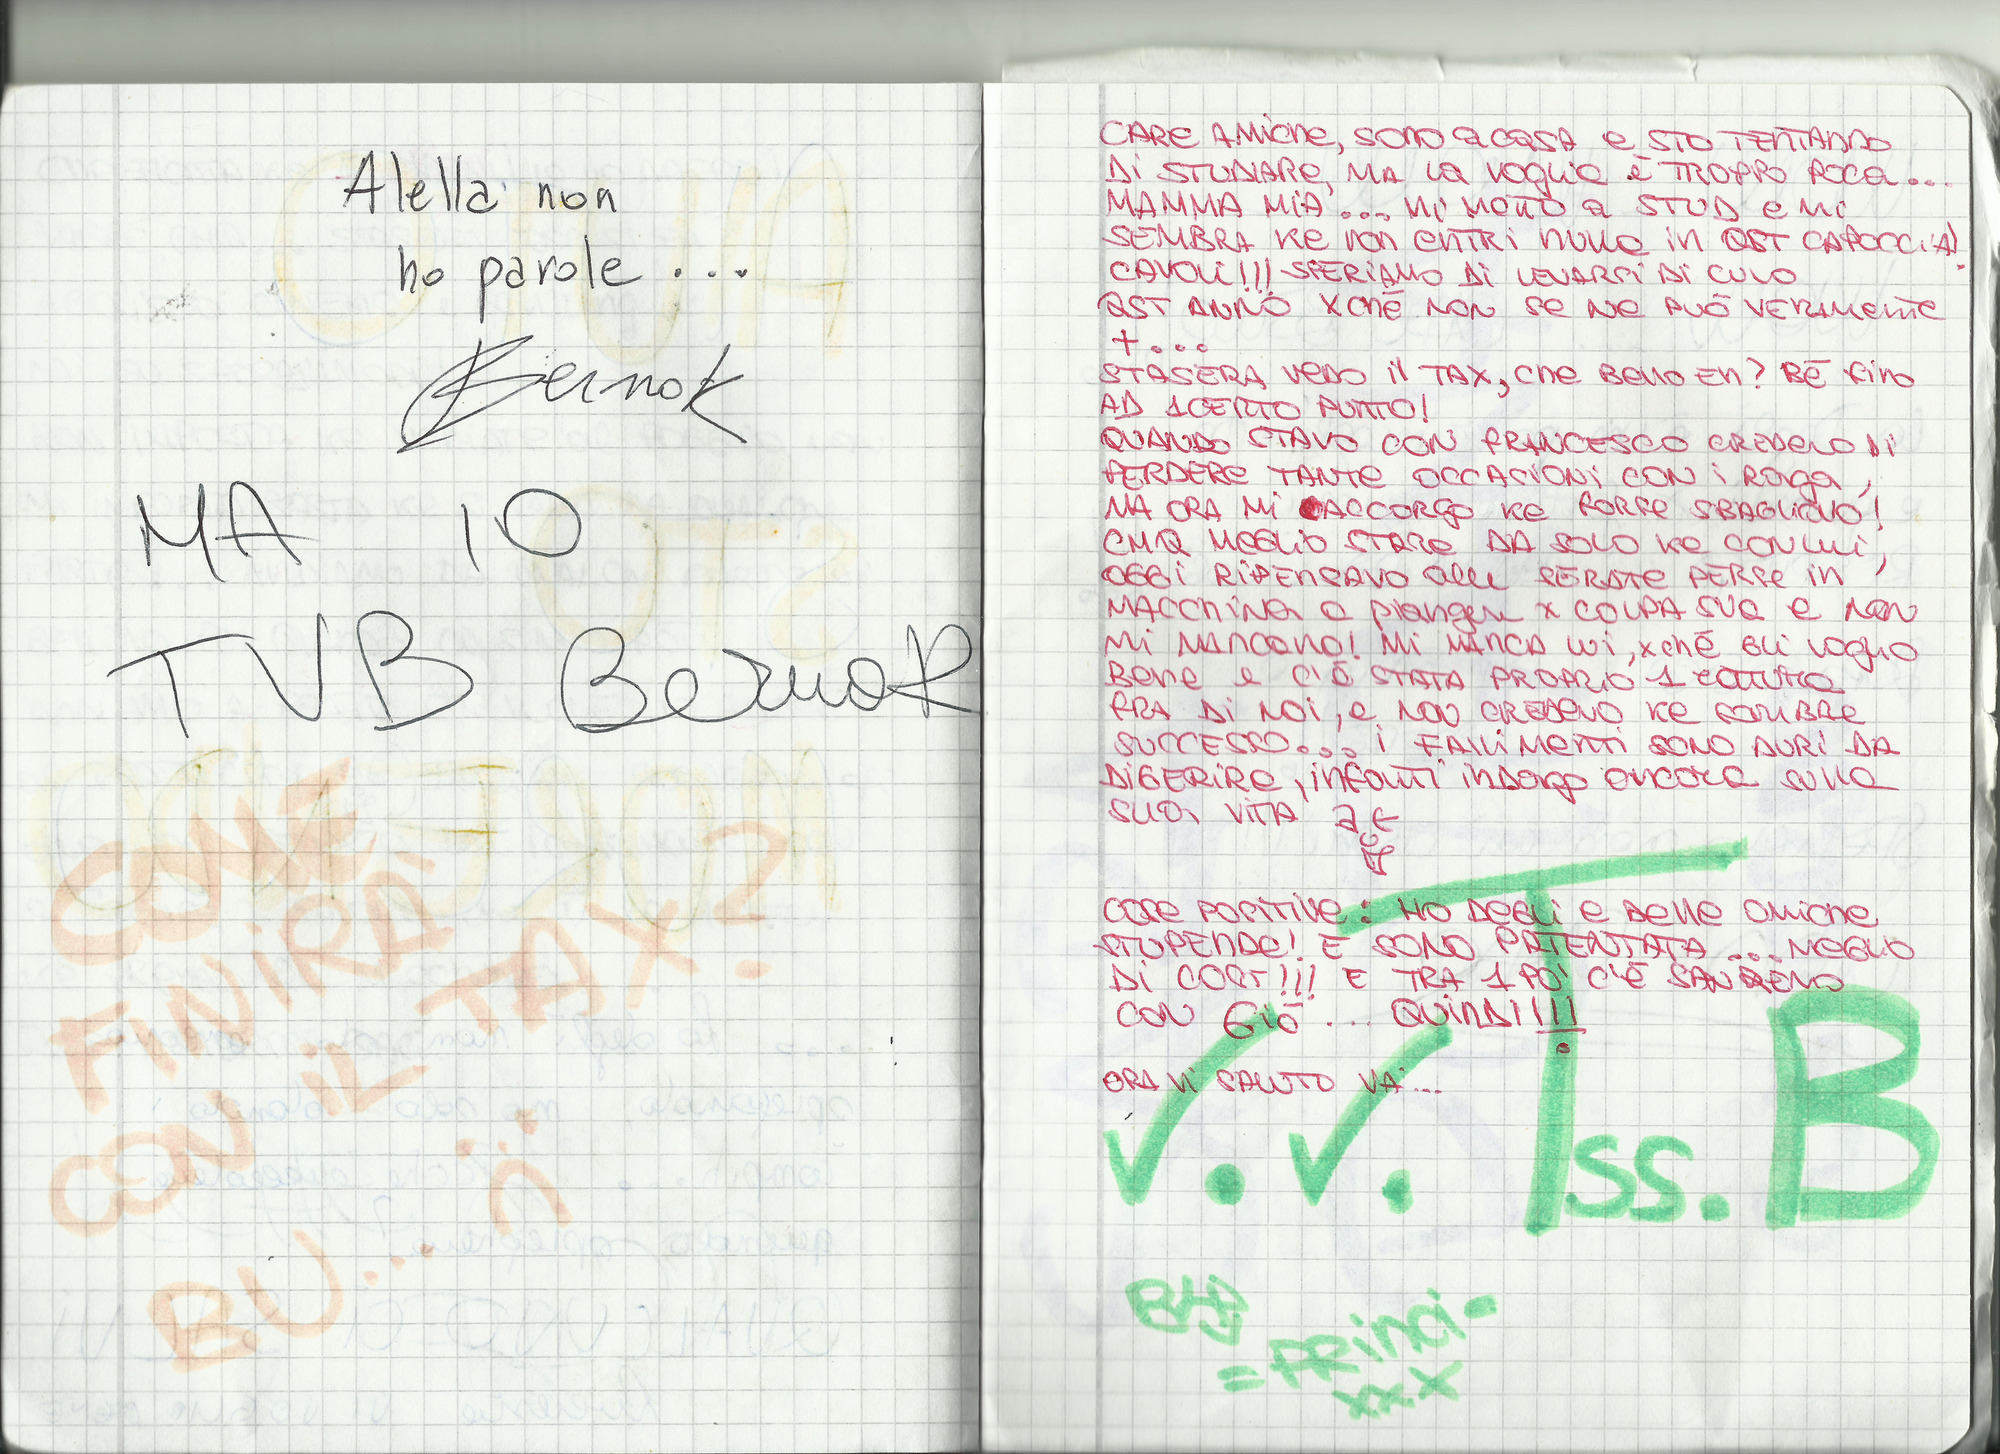 Alella non
ho parole ...
Bernok
MA IO
TVB Bernok
COME
FINIRÀ
CON IL TAX?
BU... :(
CARE AMICHE, SONO a CASA e STO TENTANDO
DI STUDIARE, MA LA VOGLIA è TROPPO POCA...
MAMMA MIA... MI METTO a STUD e MI
SEMBRA KE NON ENTRI NULLA IN QST CAPOCCIA!
CAVOLI!!! SPERIAMO DI LEVARCI DI CULO
QST ANNO XCHÈ NON SE NE PUÒ VERAMENTE
+...
STASERA VEDO il TAX, CHE BELLO EH? BÈ FINO
AD 1 CERTO PUNTO!
QUANDO STAVO CON FRANCESCO CREDEVO DI
PERDERE TANTE OCCASIONI CON I RAGA,
MA ORA MI ACCORGO KE FORSE SBAGLIAVO!
CMQ MEGLIO STARE DA SOLO KE CON LUI,
OGGI RIPENSAVO ALLE SERATE PERSE IN
MACCHINA a piangere x COLPA SUA e NON
MI MANCANO! MI MANCA LUI, XCHÈ GLI VOGLIO
BENE e C'È STATA PROPRIO 1 ROTTURA
FRA DI NOI, e NON CREDEVO KE SAREBBE
SUCCESSO... I FALLIMENTI SONO DURI DA
DIGERIRE, INFATTI INDAGO ANCORA SULLA
SUA VITA
COSE POSITIVE: HO DEGLI e DELLE AMICHE
STUPENDE! E SONO PATENTATA... MEGLIO
DI COSÌ!!! E TRA 1 PO' C'È SANREMO
CON GIÒ... QUINDI!!!!
ORA VI SALUTO VA'...
V.V.Tss.B
BY
=PRINCI=
xxx